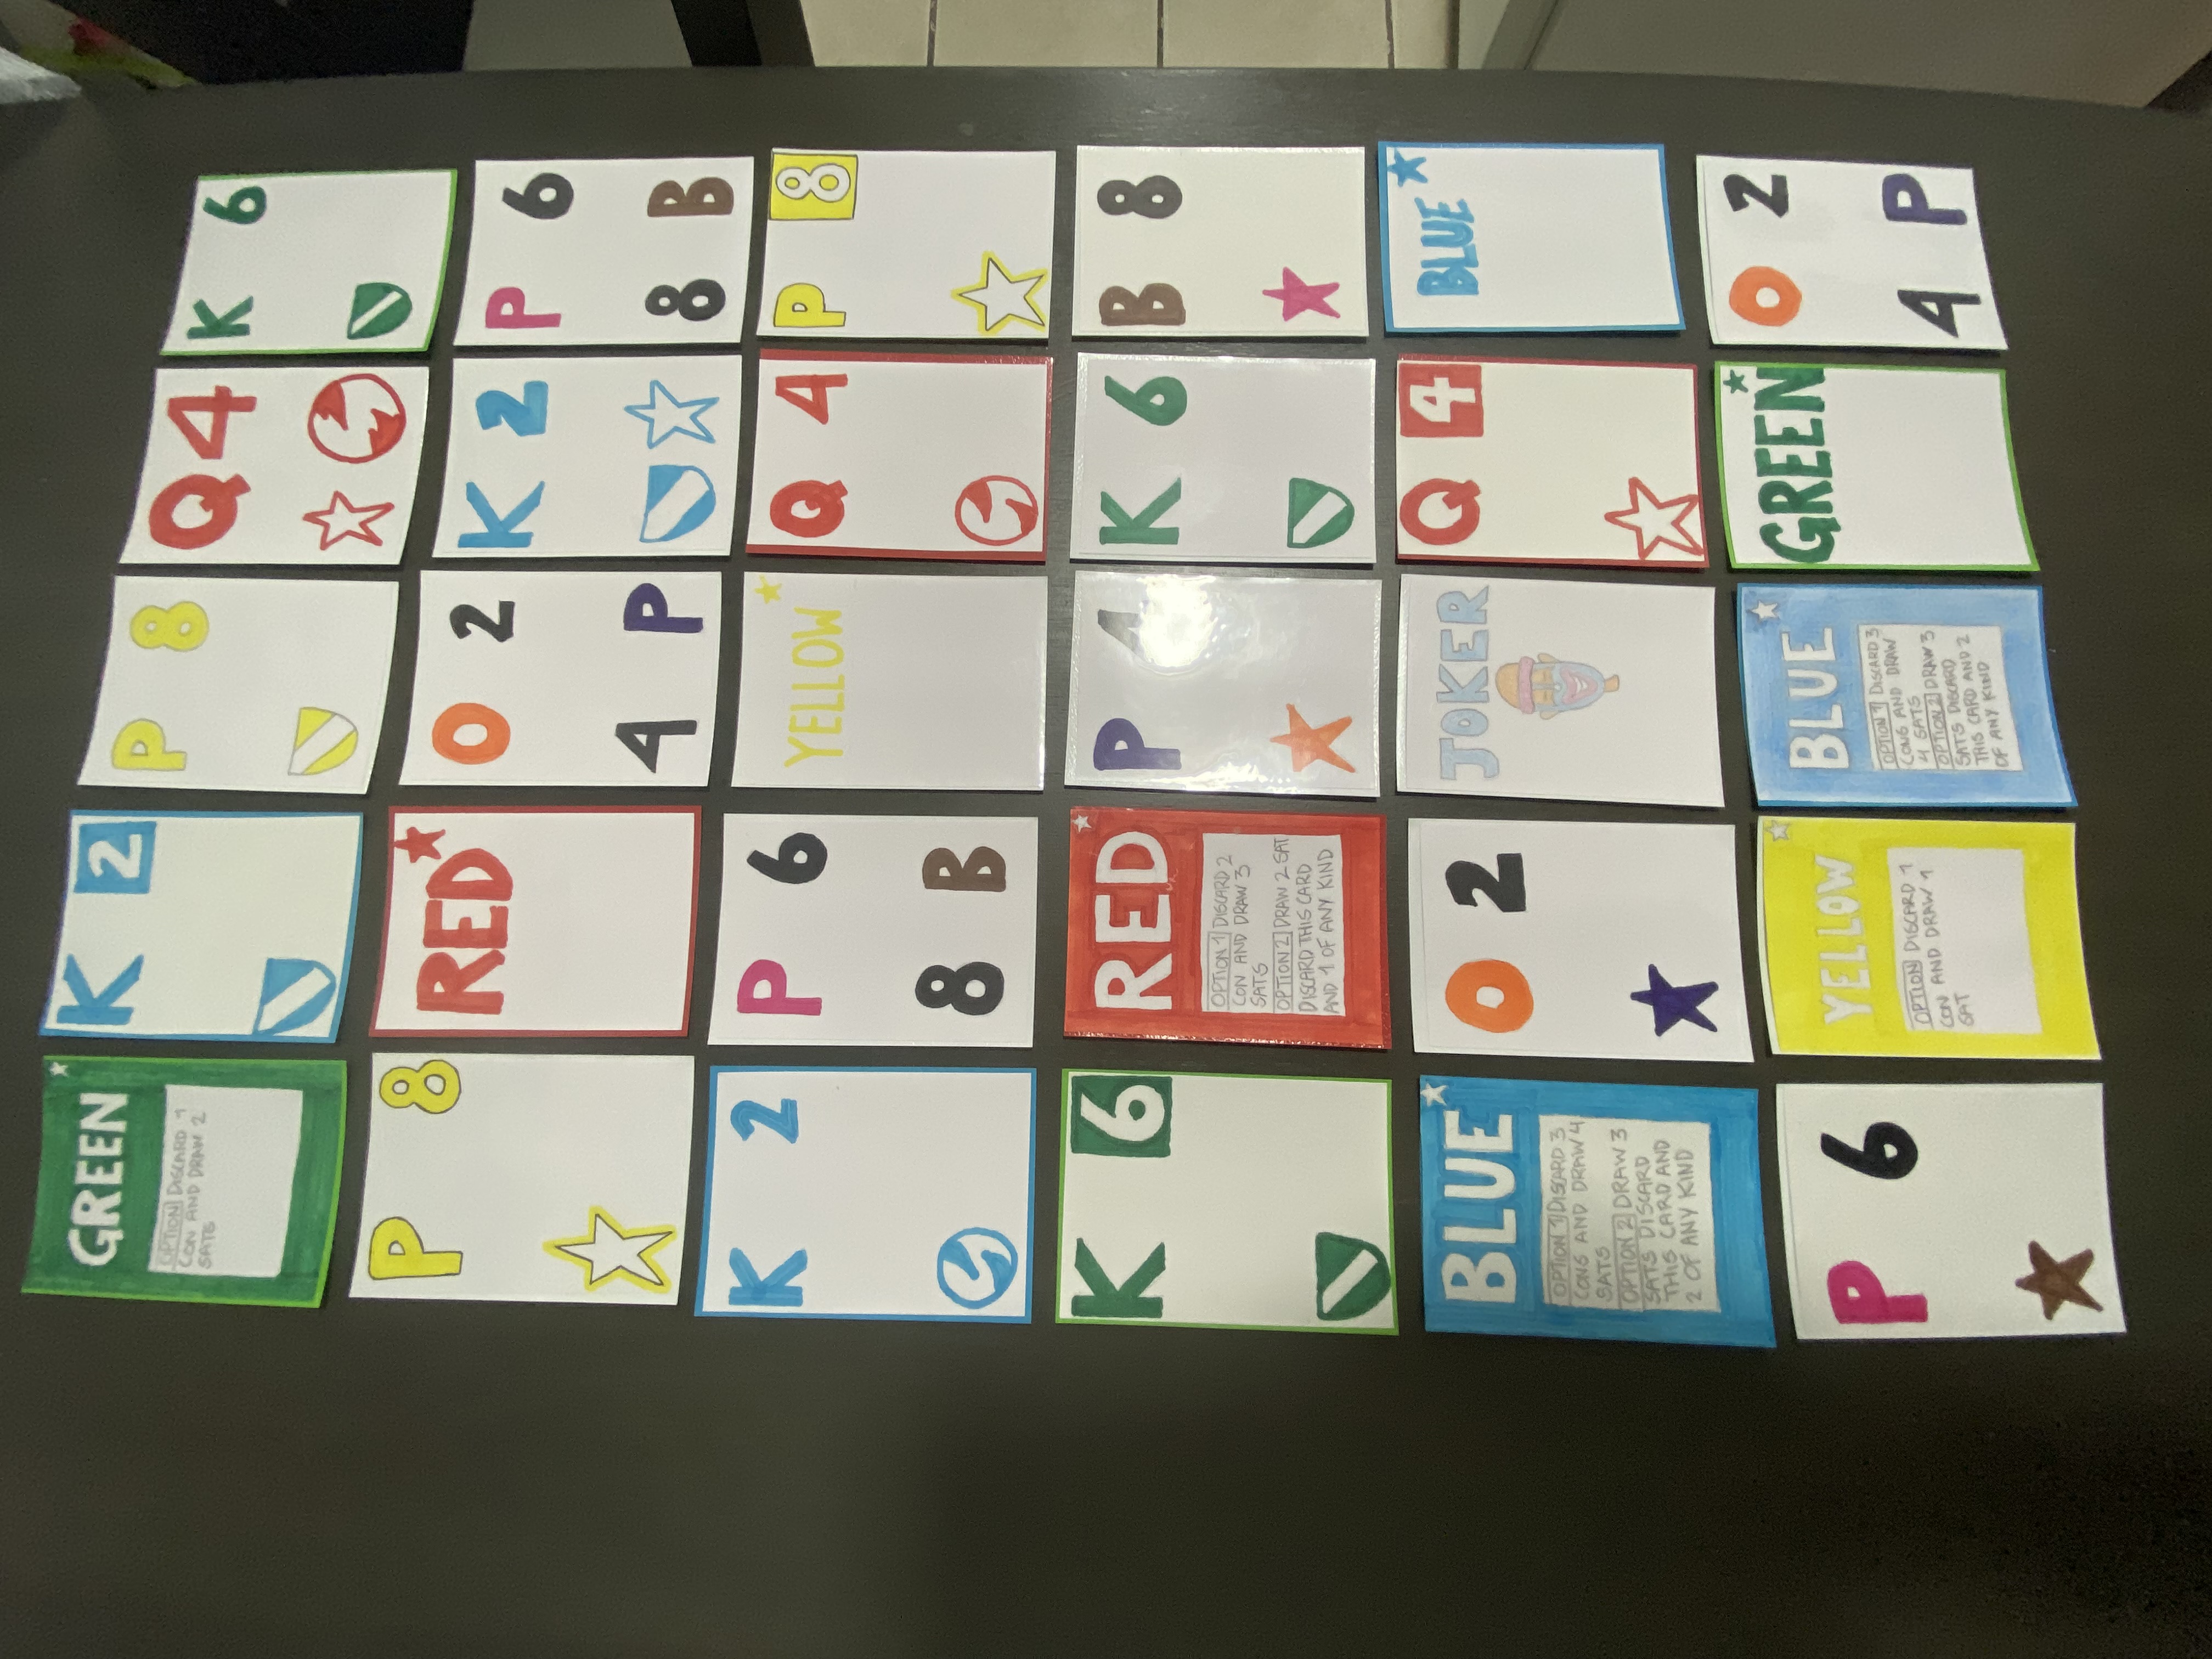 GREEN
OPTION DISCARD 1
CON AND DRAW 2
SATS
K 2
P 8
Q 4
K 6
P 8
RED
O 2
4 P
K 2
P 6
8 B
K 2
P 6
8 B
YELLOW
Q 4
P 8
K 6
RED
OPTION 1 DISCARD 2
CON AND DRAW 3
SATS
OPTION 2 DRAW 2 SAT
DISCARD THIS CARD
AND 1 OF ANY KIND
P 4
K 6
B 8
BLUE
OPTION 1 DISCARD 3
CONS AND DRAW 4
SATS
OPTION 2 DRAW 3
SATS DISCARD
THIS CARD AND
2 OF ANY KIND
O 2
JOKER
Q 4
BLUE
P 6
YELLOW
OPTION DISCARD 1
CON AND DRAW 1
SAT
BLUE
OPTION 1 DISCARD 3
CONS AND DRAW
4 SATS
OPTION 2 DRAW 3
SATS DISCARD
THIS CARD AND 2
OF ANY KIND
GREEN
O 2
4 P